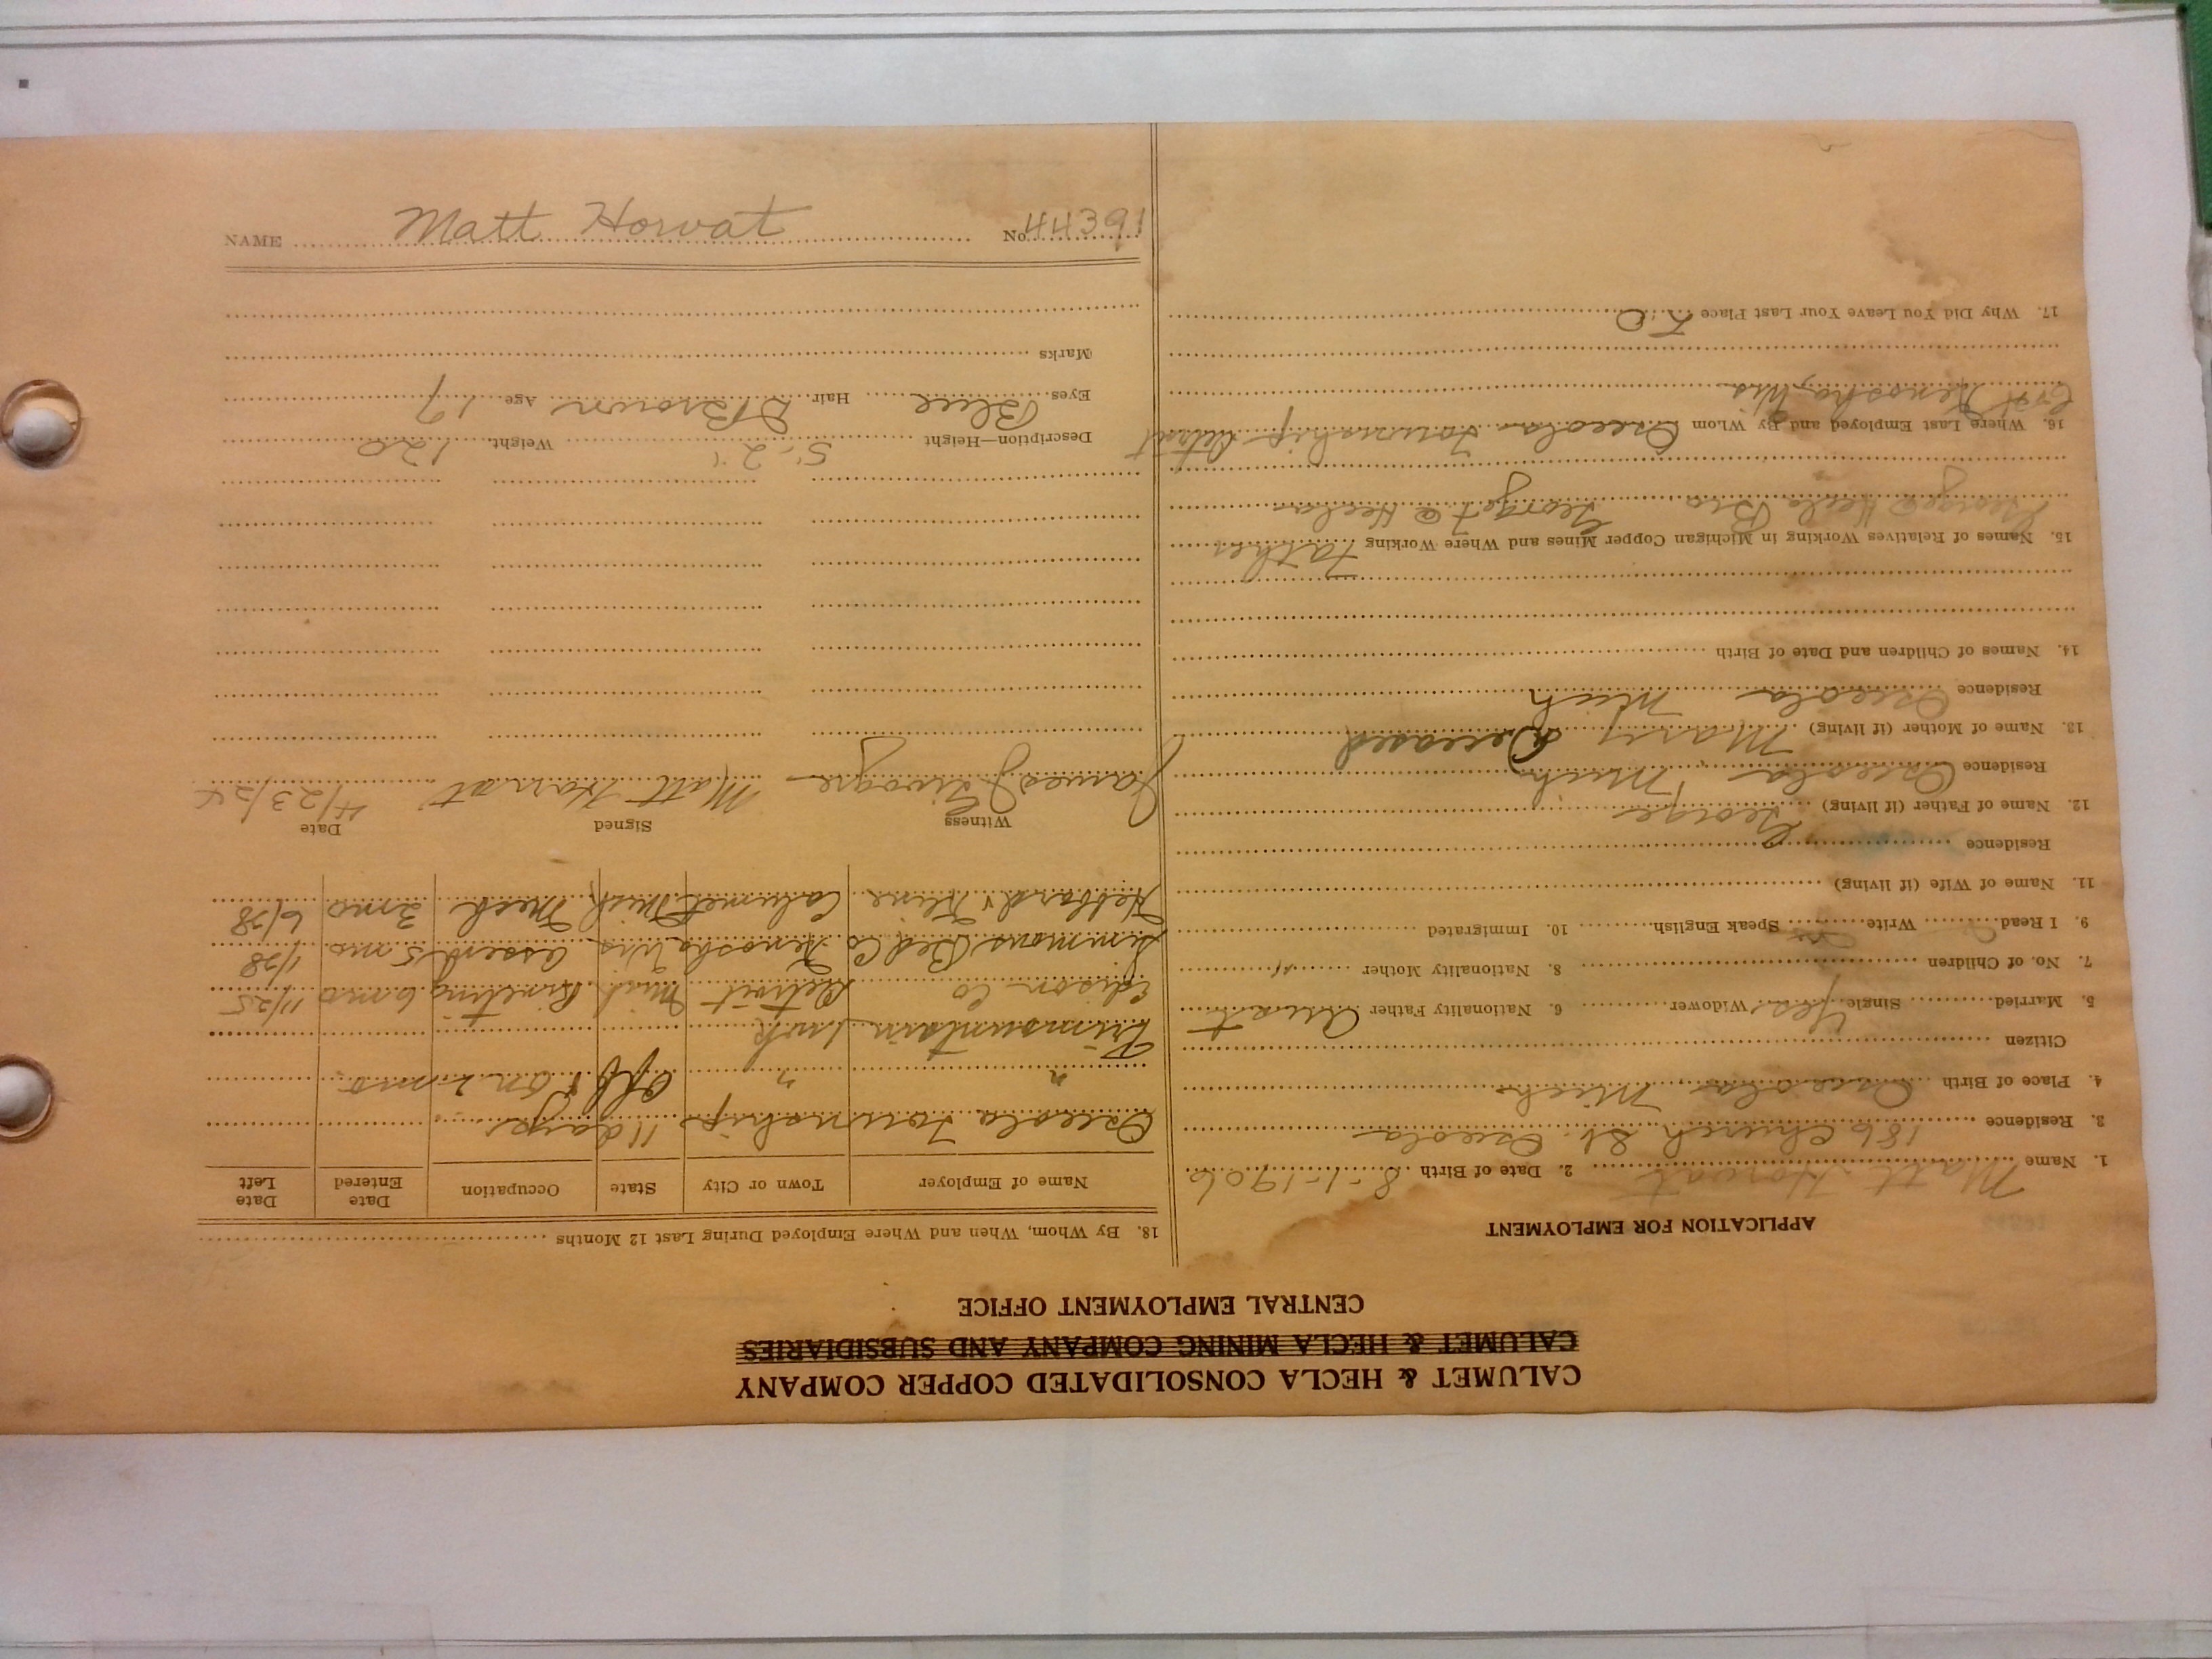 CALUMET & HECLA CONSOLIDATED COPPER COMPANY
CALUMET & HECLA MINING COMPANY AND SUBSIDIARIES
CENTRAL EMPLOYMENT OFFICE
APPLICATION FOR EMPLOYMENT
1. Name Matt Horvat 2. Date of Birth 8-1-1906
3. Residence 186 Church St. Osceola
4. Place of Birth Osceola Mich
Citizen
5. Married Single Yes Widower 6. Nationality Father
7. No. of Children 8. Nationality Mother "
9. I Read Write Speak English 10. Immigrated
11. Name of Wife (if living)
Residence
12. Name of Father (if living) George
Residence Osceola Mich
13. Name of Mother (if living) Mary Deceased
Residence Osceola Mich
14. Names of Children and Date of Birth
15. Names of Relatives Working in Michigan Copper Mines and Where Working Father
George @ Hecla Bro George J @ Hecla
16. Where Last Employed and By Whom Osceola Township Detroit
Kenosha, Wis
17. Why Did You Leave Your Last Place L O
18. By Whom, When and Where Employed During Last 12 Months
Name of Employer Town or City State Occupation Date Entered Date Left
Osceola Township 11 days
" " Off & on 2 mos
Trimountain
Edison Co Detroit Mich 6 mos 11/25
Simmons Bed Co Kenosha Wis 5 mos 1/28
Calumet Mich Mech 2 mos 6/28
Witness Signed Date
James Matt Harvat 4/23/24
Description—Height 5'-2" Weight 120
Eyes Blue Hair D Brown Age 17
Marks
NAME Matt Horvat No. 44391